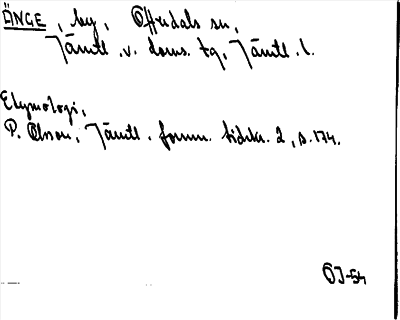 ÄNGE, by, Offerdals sn,
Jämtl. v. doms. tg, Jämtl. l.
Etymologi,
P. Olsson, Jämtl. fornm. tidskr. 2, s. 174.
ÖJ-54